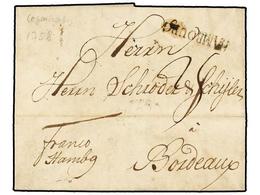 Copenhague
1758
HAMBOURG
Herrn
Herrn Schröder & Schÿler
à
franco
Hambg
Bordeaux